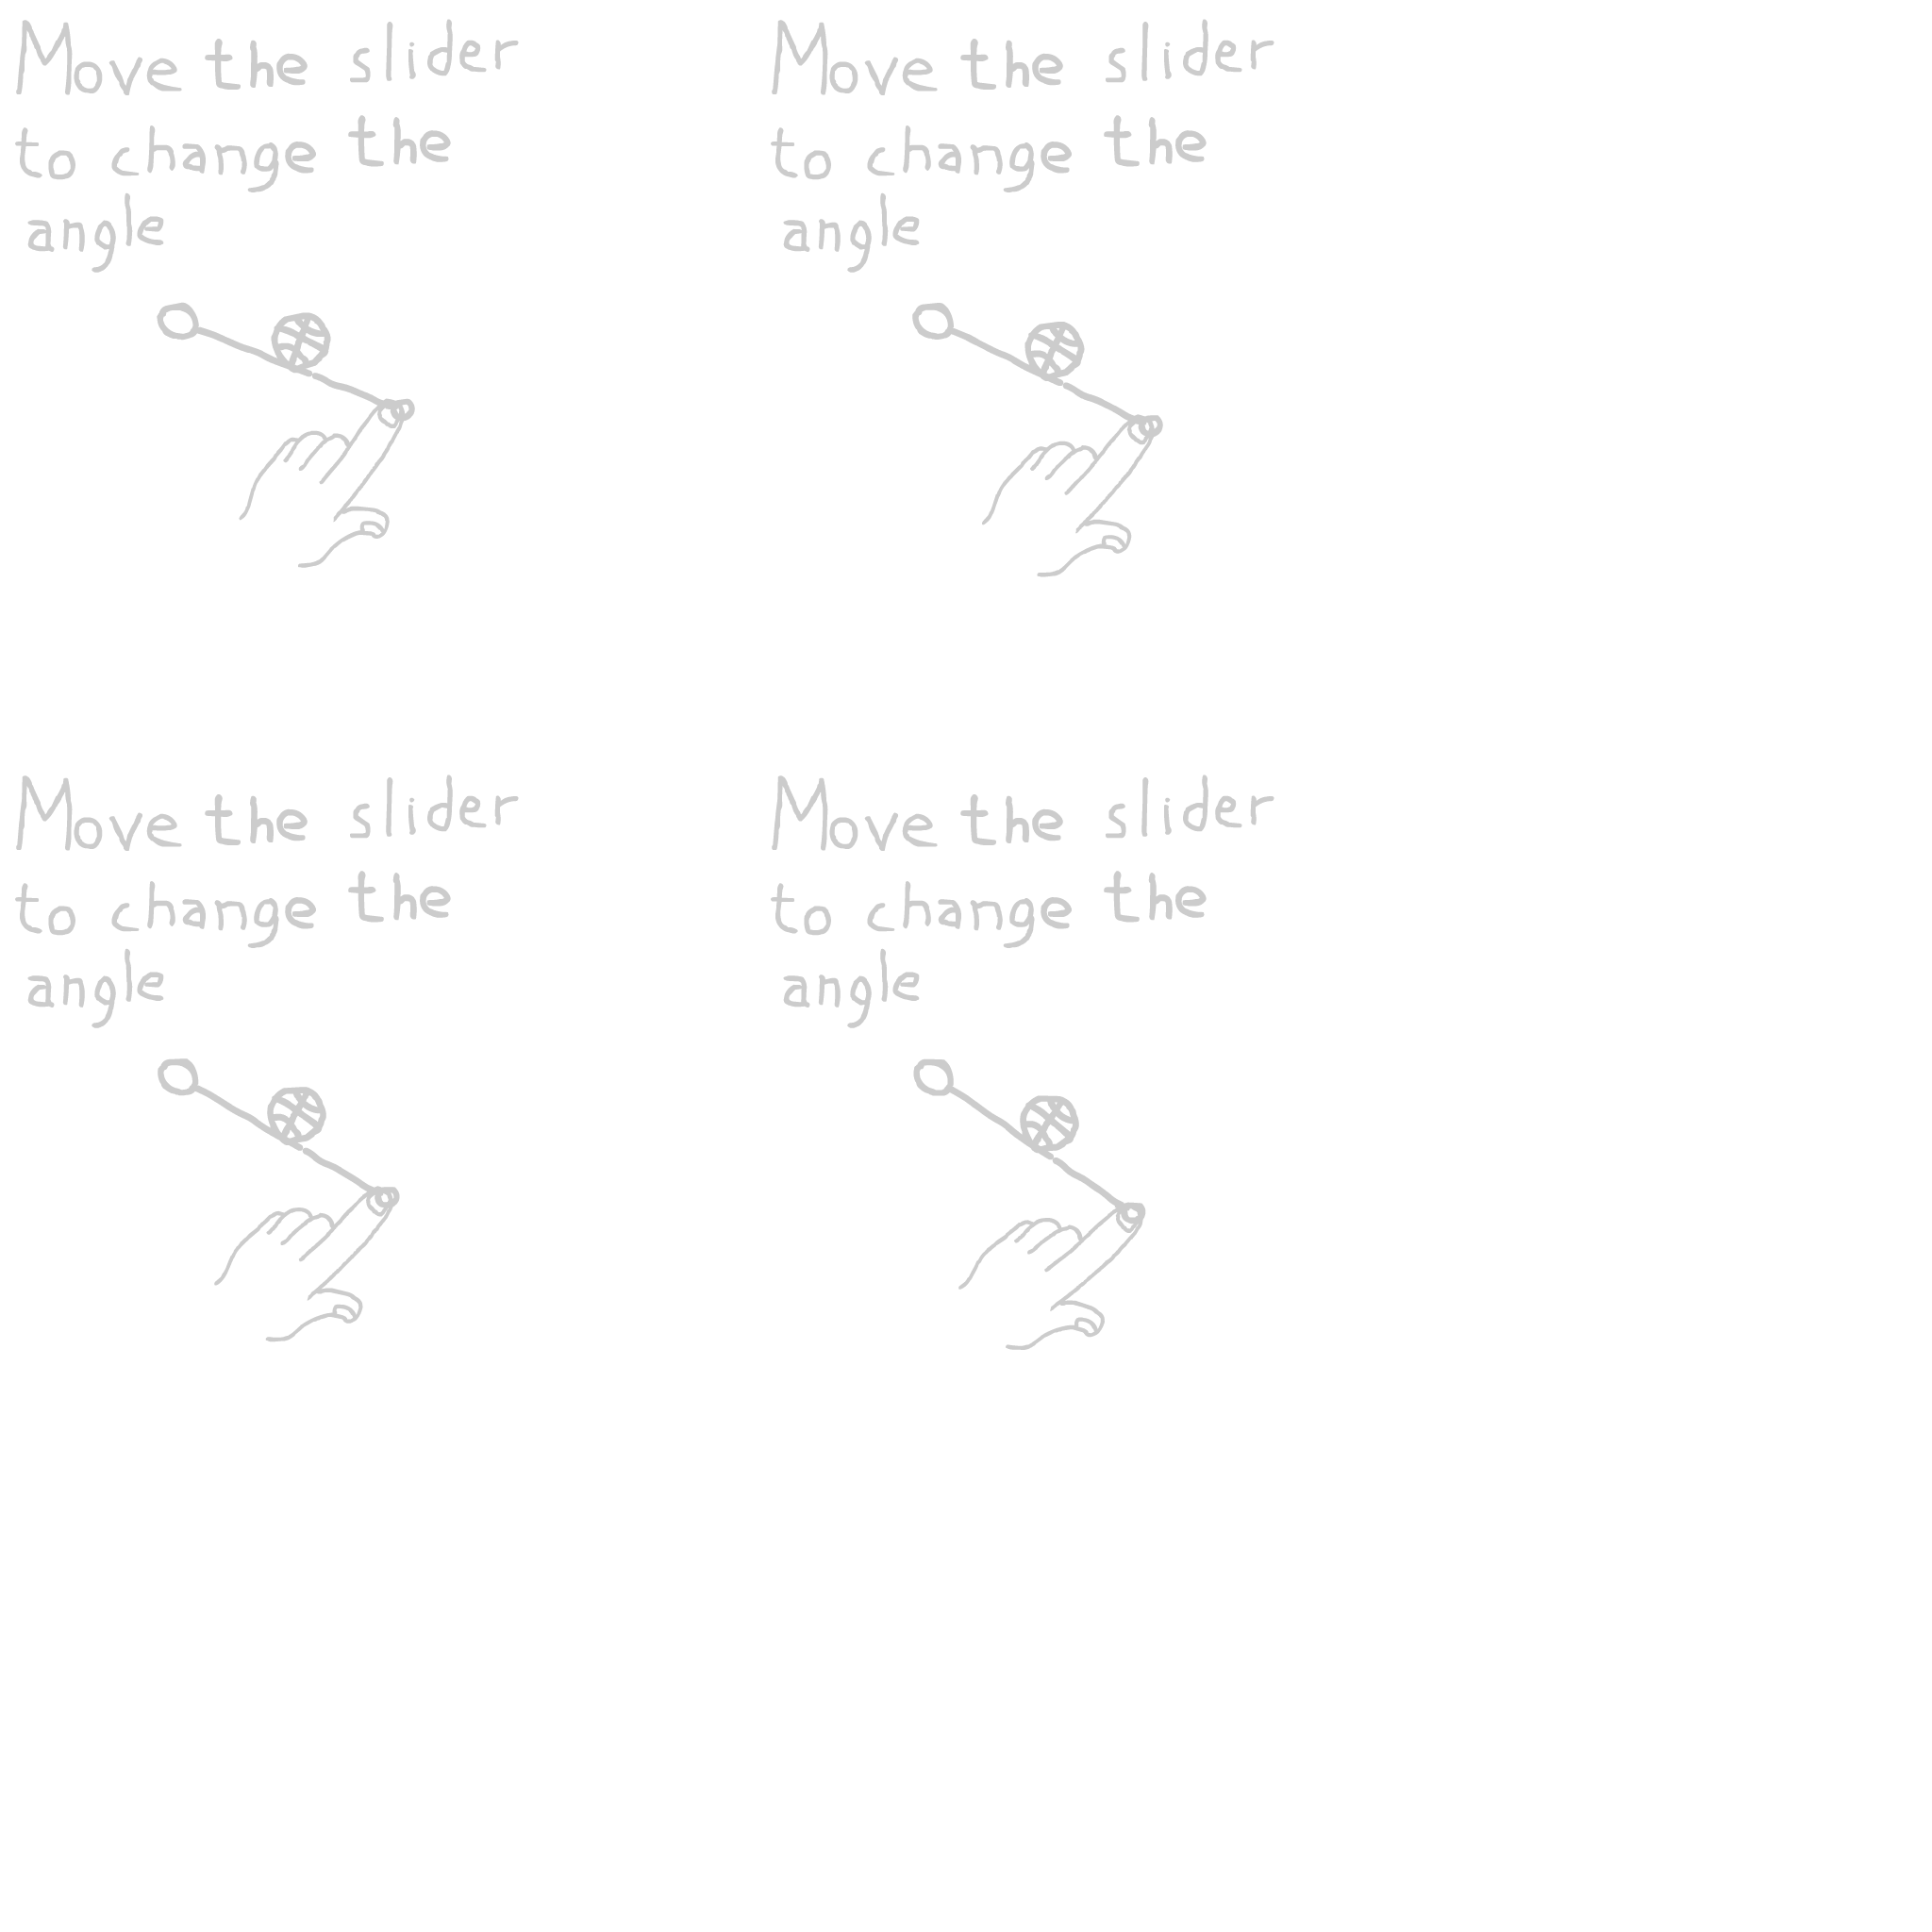 Move the slider
to change the
angle
Move the slider
to change the
angle
Move the slider
to change the
angle
Move the slider
to change the
angle